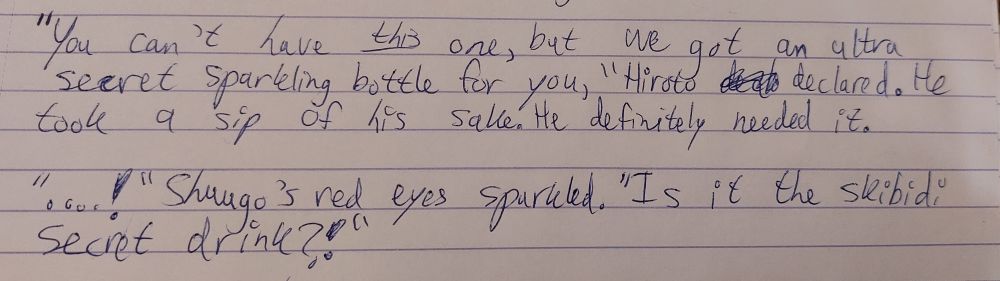 "You can't have this one, but we got an ultra
secret sparkling bottle for you," Hiroto declared. He
took a sip of his sake. He definitely needed it.
"....!" Shuugo's red eyes sparkled. "Is it the skibidi
secret drink?!"